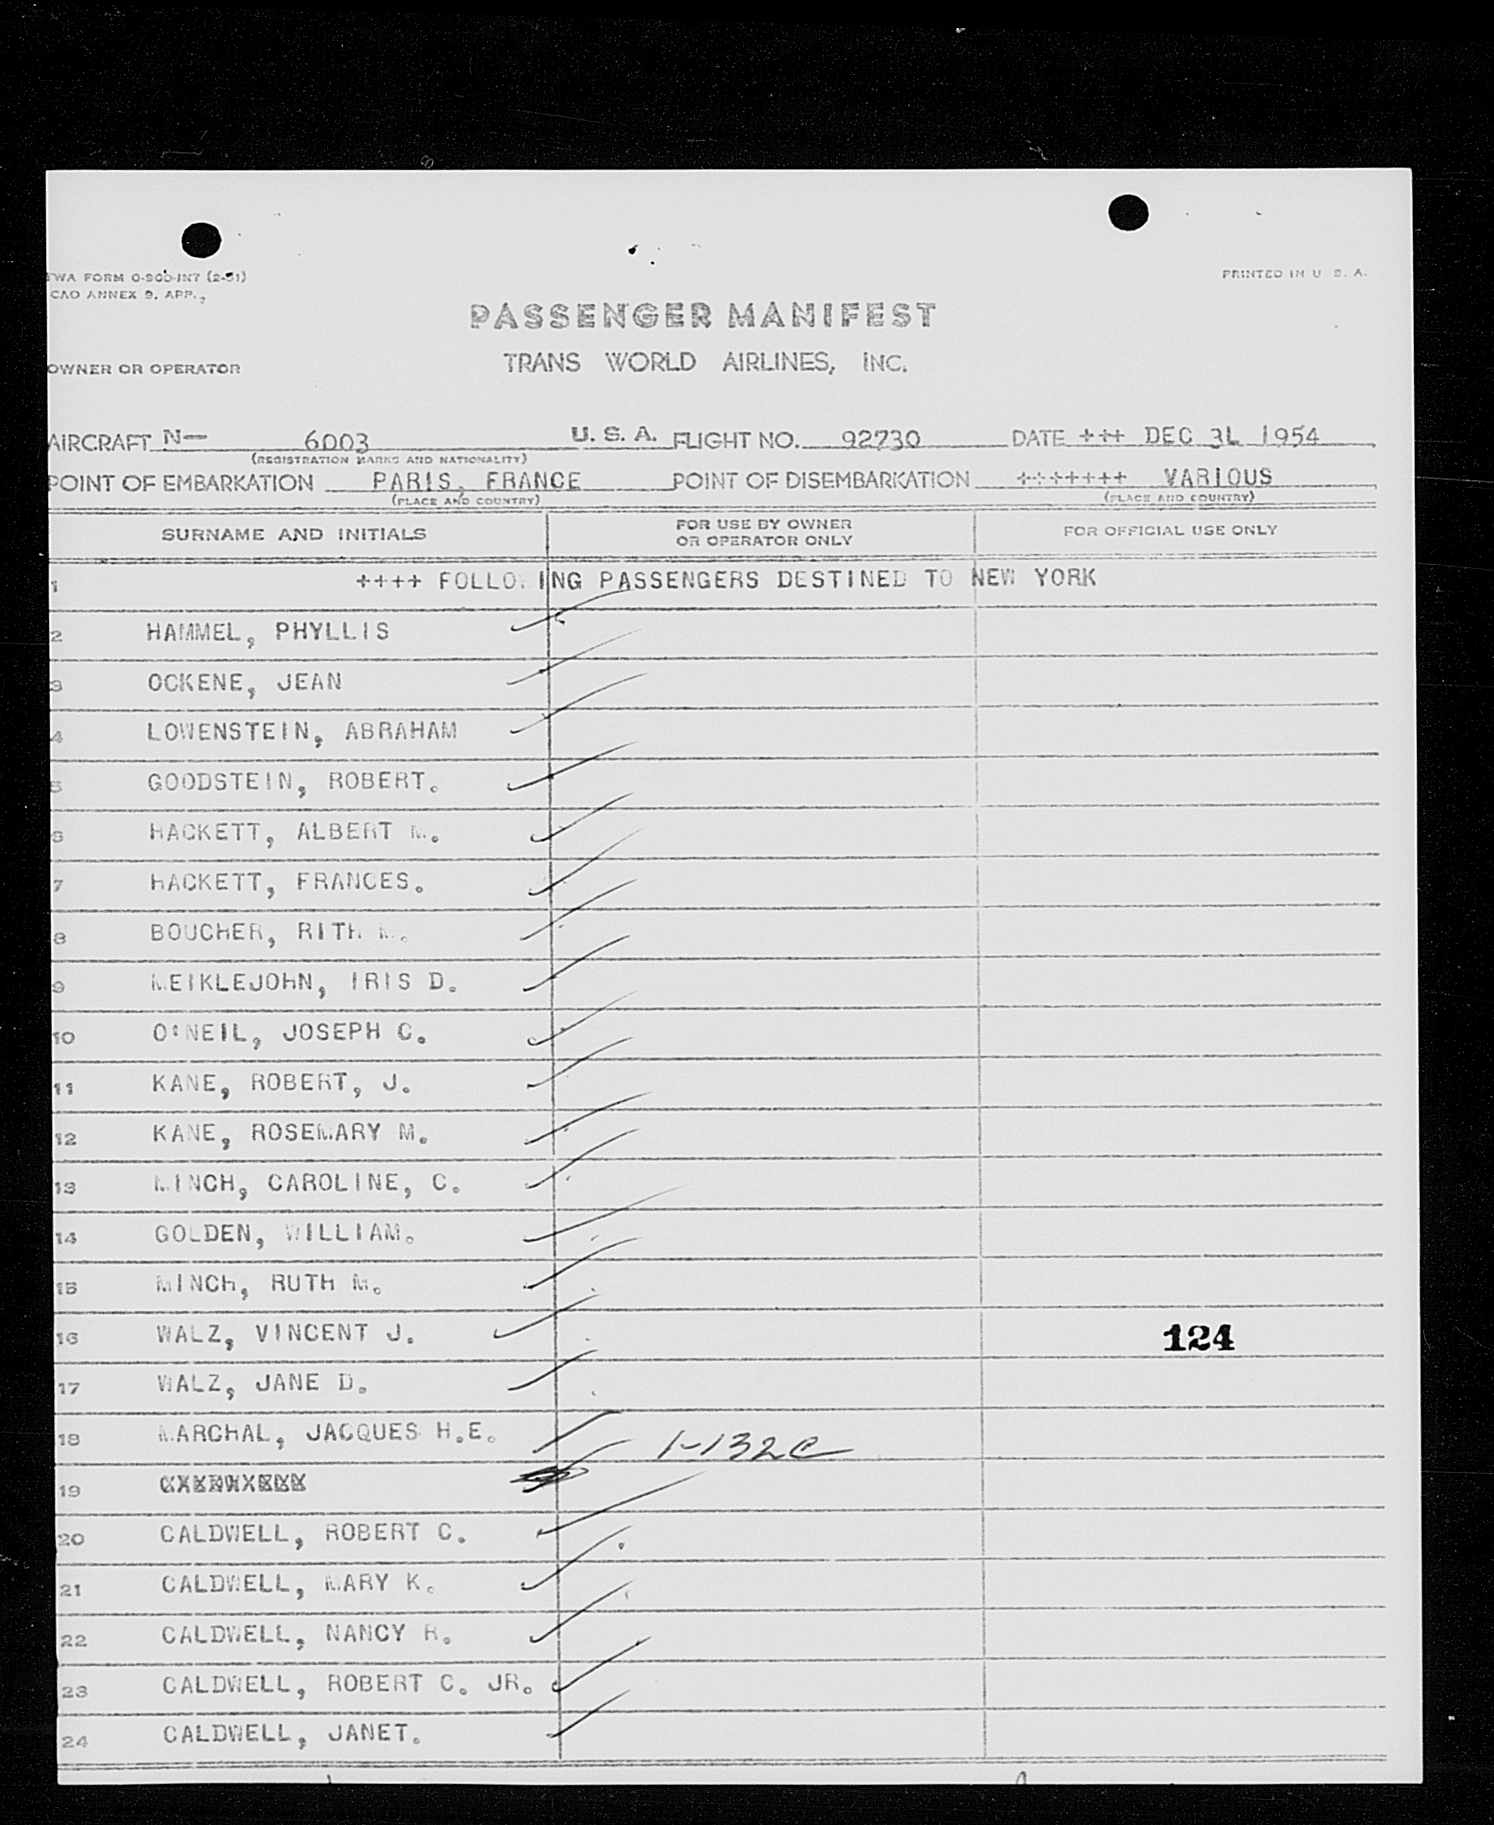 TWA FORM O-900-IN7 (2-51)
CAO ANNEX 9. APP.,
PRINTED IN U. S. A.
PASSENGER MANIFEST
TRANS WORLD AIRLINES, INC.
OWNER OR OPERATOR
AIRCRAFT N— 6003 U. S. A. FLIGHT NO. 92730 DATE +++ DEC 3L 1954
(REGISTRATION MARKS AND NATIONALITY)
POINT OF EMBARKATION PARIS, FRANCE POINT OF DISEMBARKATION +++++++ VARIOUS
(PLACE AND COUNTRY) (PLACE AND COUNTRY)
SURNAME AND INITIALS FOR USE BY OWNER OR OPERATOR ONLY FOR OFFICIAL USE ONLY
1 ++++ FOLLOWING PASSENGERS DESTINED TO NEW YORK
2 HAMMEL, PHYLLIS
3 OCKENE, JEAN
4 LOWENSTEIN, ABRAHAM
5 GOODSTEIN, ROBERT.
6 HACKETT, ALBERT M.
7 HACKETT, FRANCES.
8 BOUCHER, RITH M.
9 MEIKLEJOHN, IRIS D.
10 O'NEIL, JOSEPH C.
11 KANE, ROBERT, J.
12 KANE, ROSEMARY M.
13 MINCH, CAROLINE, C.
14 GOLDEN, WILLIAM.
15 MINCH, RUTH M.
16 WALZ, VINCENT J. 124
17 WALZ, JANE D.
18 MARCHAL, JACQUES H.E. 1-132C
19
20 CALDWELL, ROBERT C.
21 CALDWELL, MARY K.
22 CALDWELL, NANCY R.
23 CALDWELL, ROBERT C. JR.
24 CALDWELL, JANET.